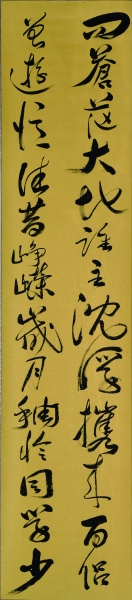 問蒼茫大地誰主沈浮攜來百侶
曾遊憶往昔崢嶸歲月稠恰同學少